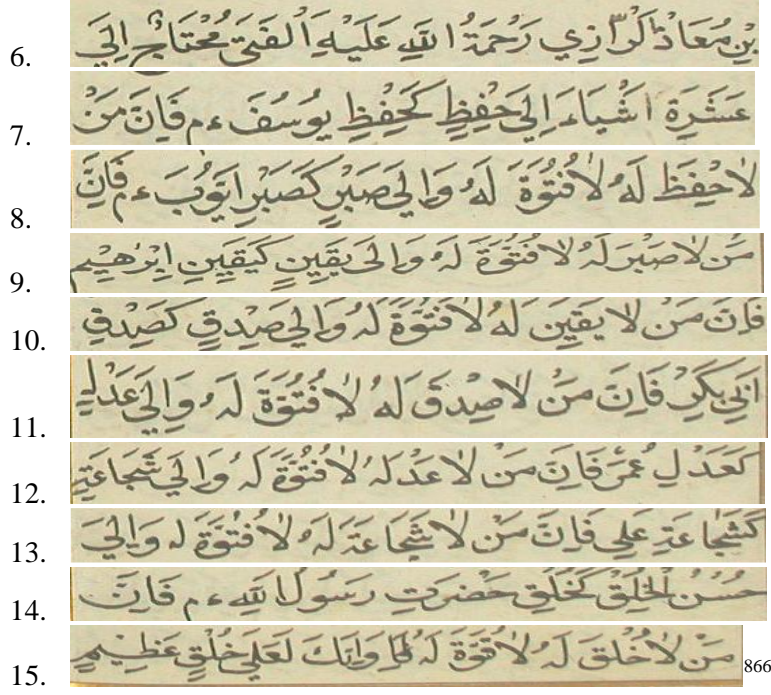 6. بِنْ مُعَاذْ الرَّازِي رَحْمَةُ اللَّهِ عَلَيْهِ اَلْفَتَى مُحْتَاجٌ اِلَى
7. عَشَرَةِ اَشْيَاءَ اِلَى حِفْظٍ كَحِفْظِ يُوسُفَ ءم فَاِنَّ مَنْ
8. لَا حِفْظَ لَهُ لَا فُتُوَّةَ لَهُ وَاِلَى صَبْرٍ كَصَبْرِ اَيُّوبَ ءم فَاِنَّ
9. مَنْ لَا صَبْرَ لَهُ لَا فُتُوَّةَ لَهُ وَاِلَى يَقِينٍ كَيَقِينِ اِبْرٰهِيمِ
10. فَاِنَّ مَنْ لَا يَقِينَ لَهُ لَا فُتُوَّةَ لَهُ وَاِلَى صِدْقٍ كَصِدْقِ
11. اَبِي بَكْرٍ فَاِنَّ مَنْ لَا صِدْقَ لَهُ لَا فُتُوَّةَ لَهُ وَاِلَى عَدْلٍ
12. كَعَدْلِ عُمَرَ فَاِنَّ مَنْ لَا عَدْلَ لَهُ لَا فُتُوَّةَ لَهُ وَاِلَى شَجَاعَةٍ
13. كَشَجَاعَةِ عَلِي فَاِنَّ مَنْ لَا شَجَاعَةَ لَهُ لَا فُتُوَّةَ لَهُ وَاِلَى
14. حُسْنُ الْخُلْقِ كَخُلْقِ حَضْرَتِ رَسُولُ اللَّهِ ءم فَاِنَّ
15. مَنْ لَا خُلْقَ لَهُ لَا فُتُوَّةَ لَهُ وَاِنَّكَ لَعَلَى خُلُقٍ عَظِيمٍ 866